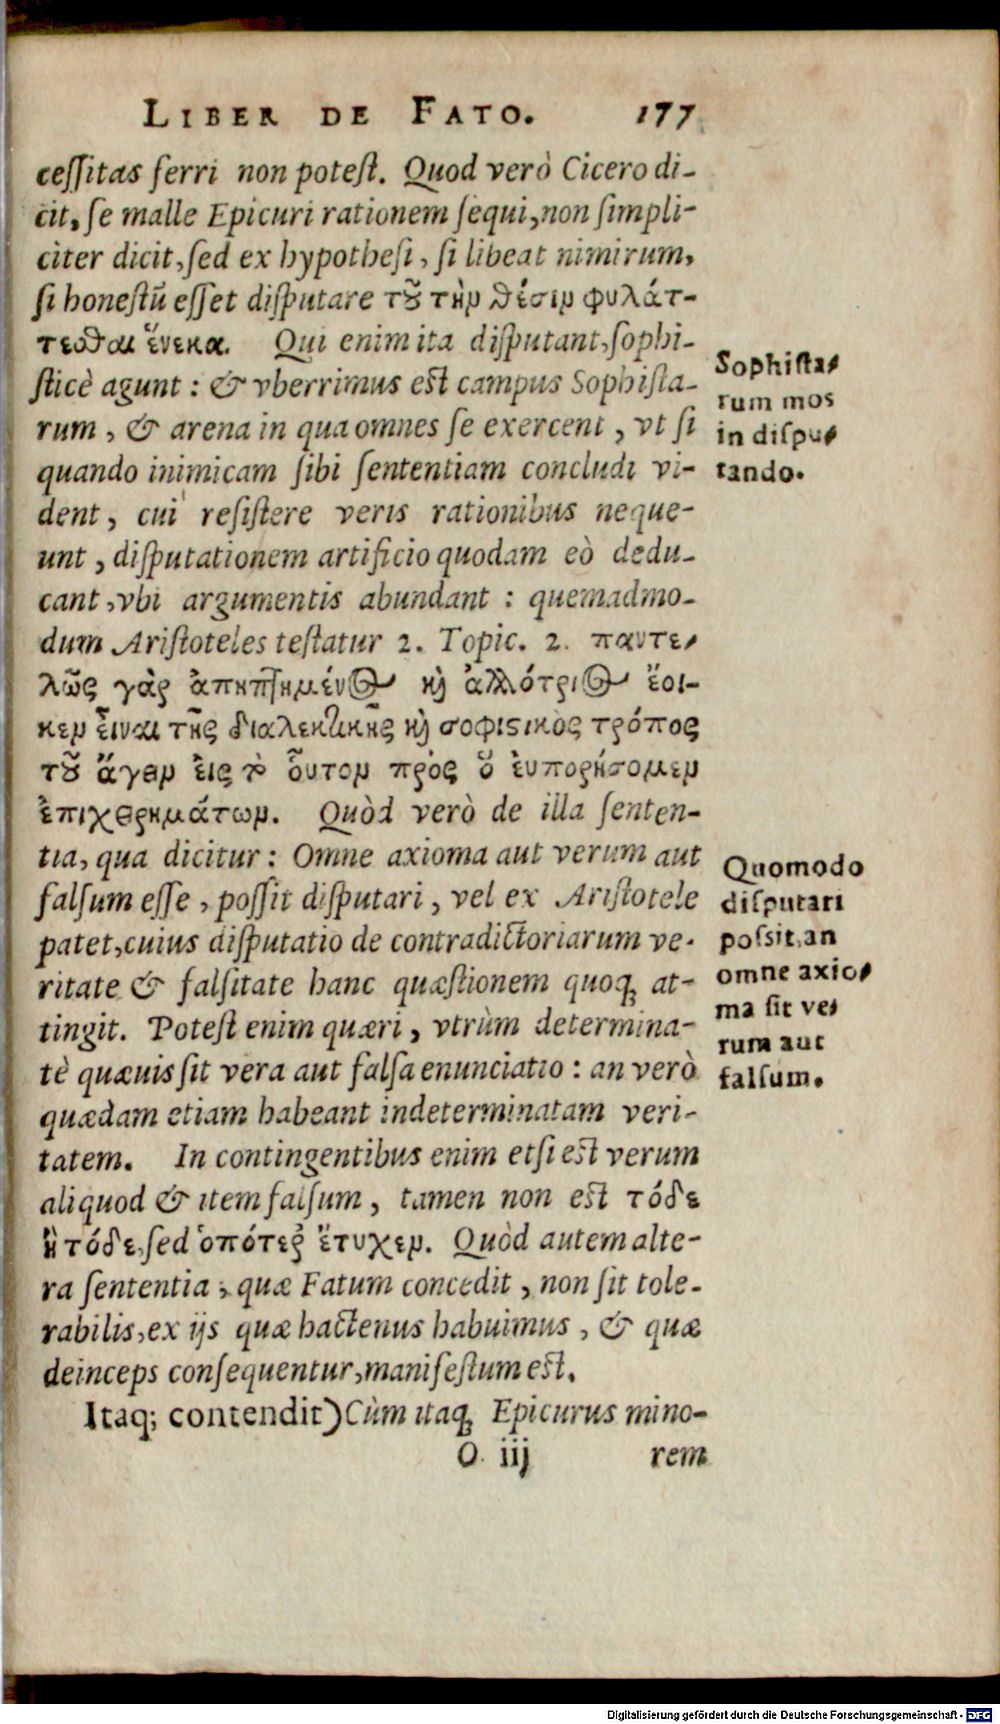 LIBER DE FATO. 177
cessitas ferri non potest. Quod verò Cicero di-
cit, se malle Epicuri rationem sequi, non simpli-
citer dicit, sed ex hypothesi, si libeat nimirum,
si honestū esset disputare τοῦ τὴν θέσιν φυλάτ-
τεσθαι ἕνεκα. Qui enim ita disputant, sophi-
sticè agunt: & vberrimus est campus Sophista-
rum, & arena in qua omnes se exercent, vt si
quando inimicam sibi sententiam concludi vi-
dent, cui resistere veris rationibus neque-
unt, disputationem artificio quodam eò dedu-
cant, vbi argumentis abundant: quemadmo-
dum Aristoteles testatur 2. Topic. 2. παντε-
λῶς γὰρ ἀπηρτημένος καὶ ἀλλότριος ἔοι-
κεν εἶναι τῆς διαλεκτικῆς καὶ σοφιστικὸς τρόπος
τοῦ ἄγειν εἰς τὸ οὗτον πρὸς ὅ εὐπορήσομεν
ἐπιχειρημάτων. Quòd verò de illa senten-
tia, qua dicitur: Omne axioma aut verum aut
falsum esse, possit disputari, vel ex Aristotele
patet, cuius disputatio de contradictoriarum ve-
ritate & falsitate hanc quæstionem quoq; at-
tingit. Potest enim quæri, vtrùm determina-
tè quæuis sit vera aut falsa enunciatio: an verò
quædam etiam habeant indeterminatam veri-
tatem. In contingentibus enim etsi est verum
aliquod & item falsum, tamen non est τόδε
ἢ τόδε, sed ὁπότερ᾽ ἔτυχεν. Quòd autem alte-
ra sententia, quæ Fatum concedit, non sit tole-
rabilis, ex ijs quæ hactenus habuimus, & quæ
deinceps consequentur, manifestum est.
Itaq; contendit) Cùm itaq; Epicurus mino-
O iij rem
Sophista-
rum mos
in dispu-
tando.
Quomodo
disputari
possit, an
omne axio-
ma sit ve-
rum aut
falsum.
Digitalisierung gefördert durch die Deutsche Forschungsgemeinschaft - DFG